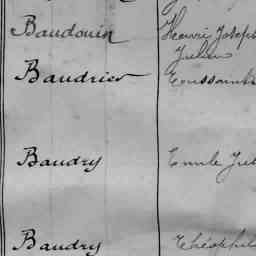 Baudouin Henri Joseph
Julien
Baudrier Toussaint
Baudry Emile Jul
Baudry Théophil